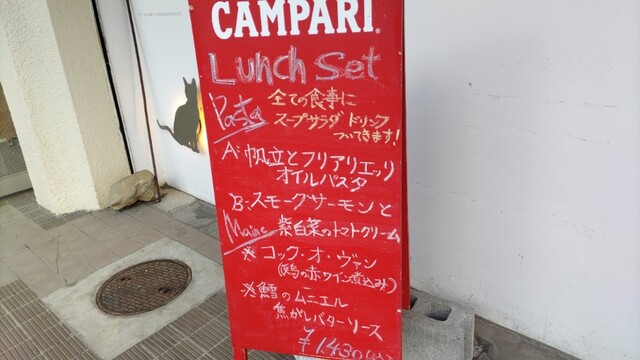 CAMPARI
Lunch Set
Pasta
全ての食事に
スープサラダ ドリンク
ついてきます!
A: 帆立とフリアリエッリ
オイルパスタ
B:スモークサーモンと
紫白菜のトマトクリーム
Main
※コック・オ・ヴァン
(鶏の赤ワイン煮込み)
※鱈のムニエル
焦がしバターソース
¥1430